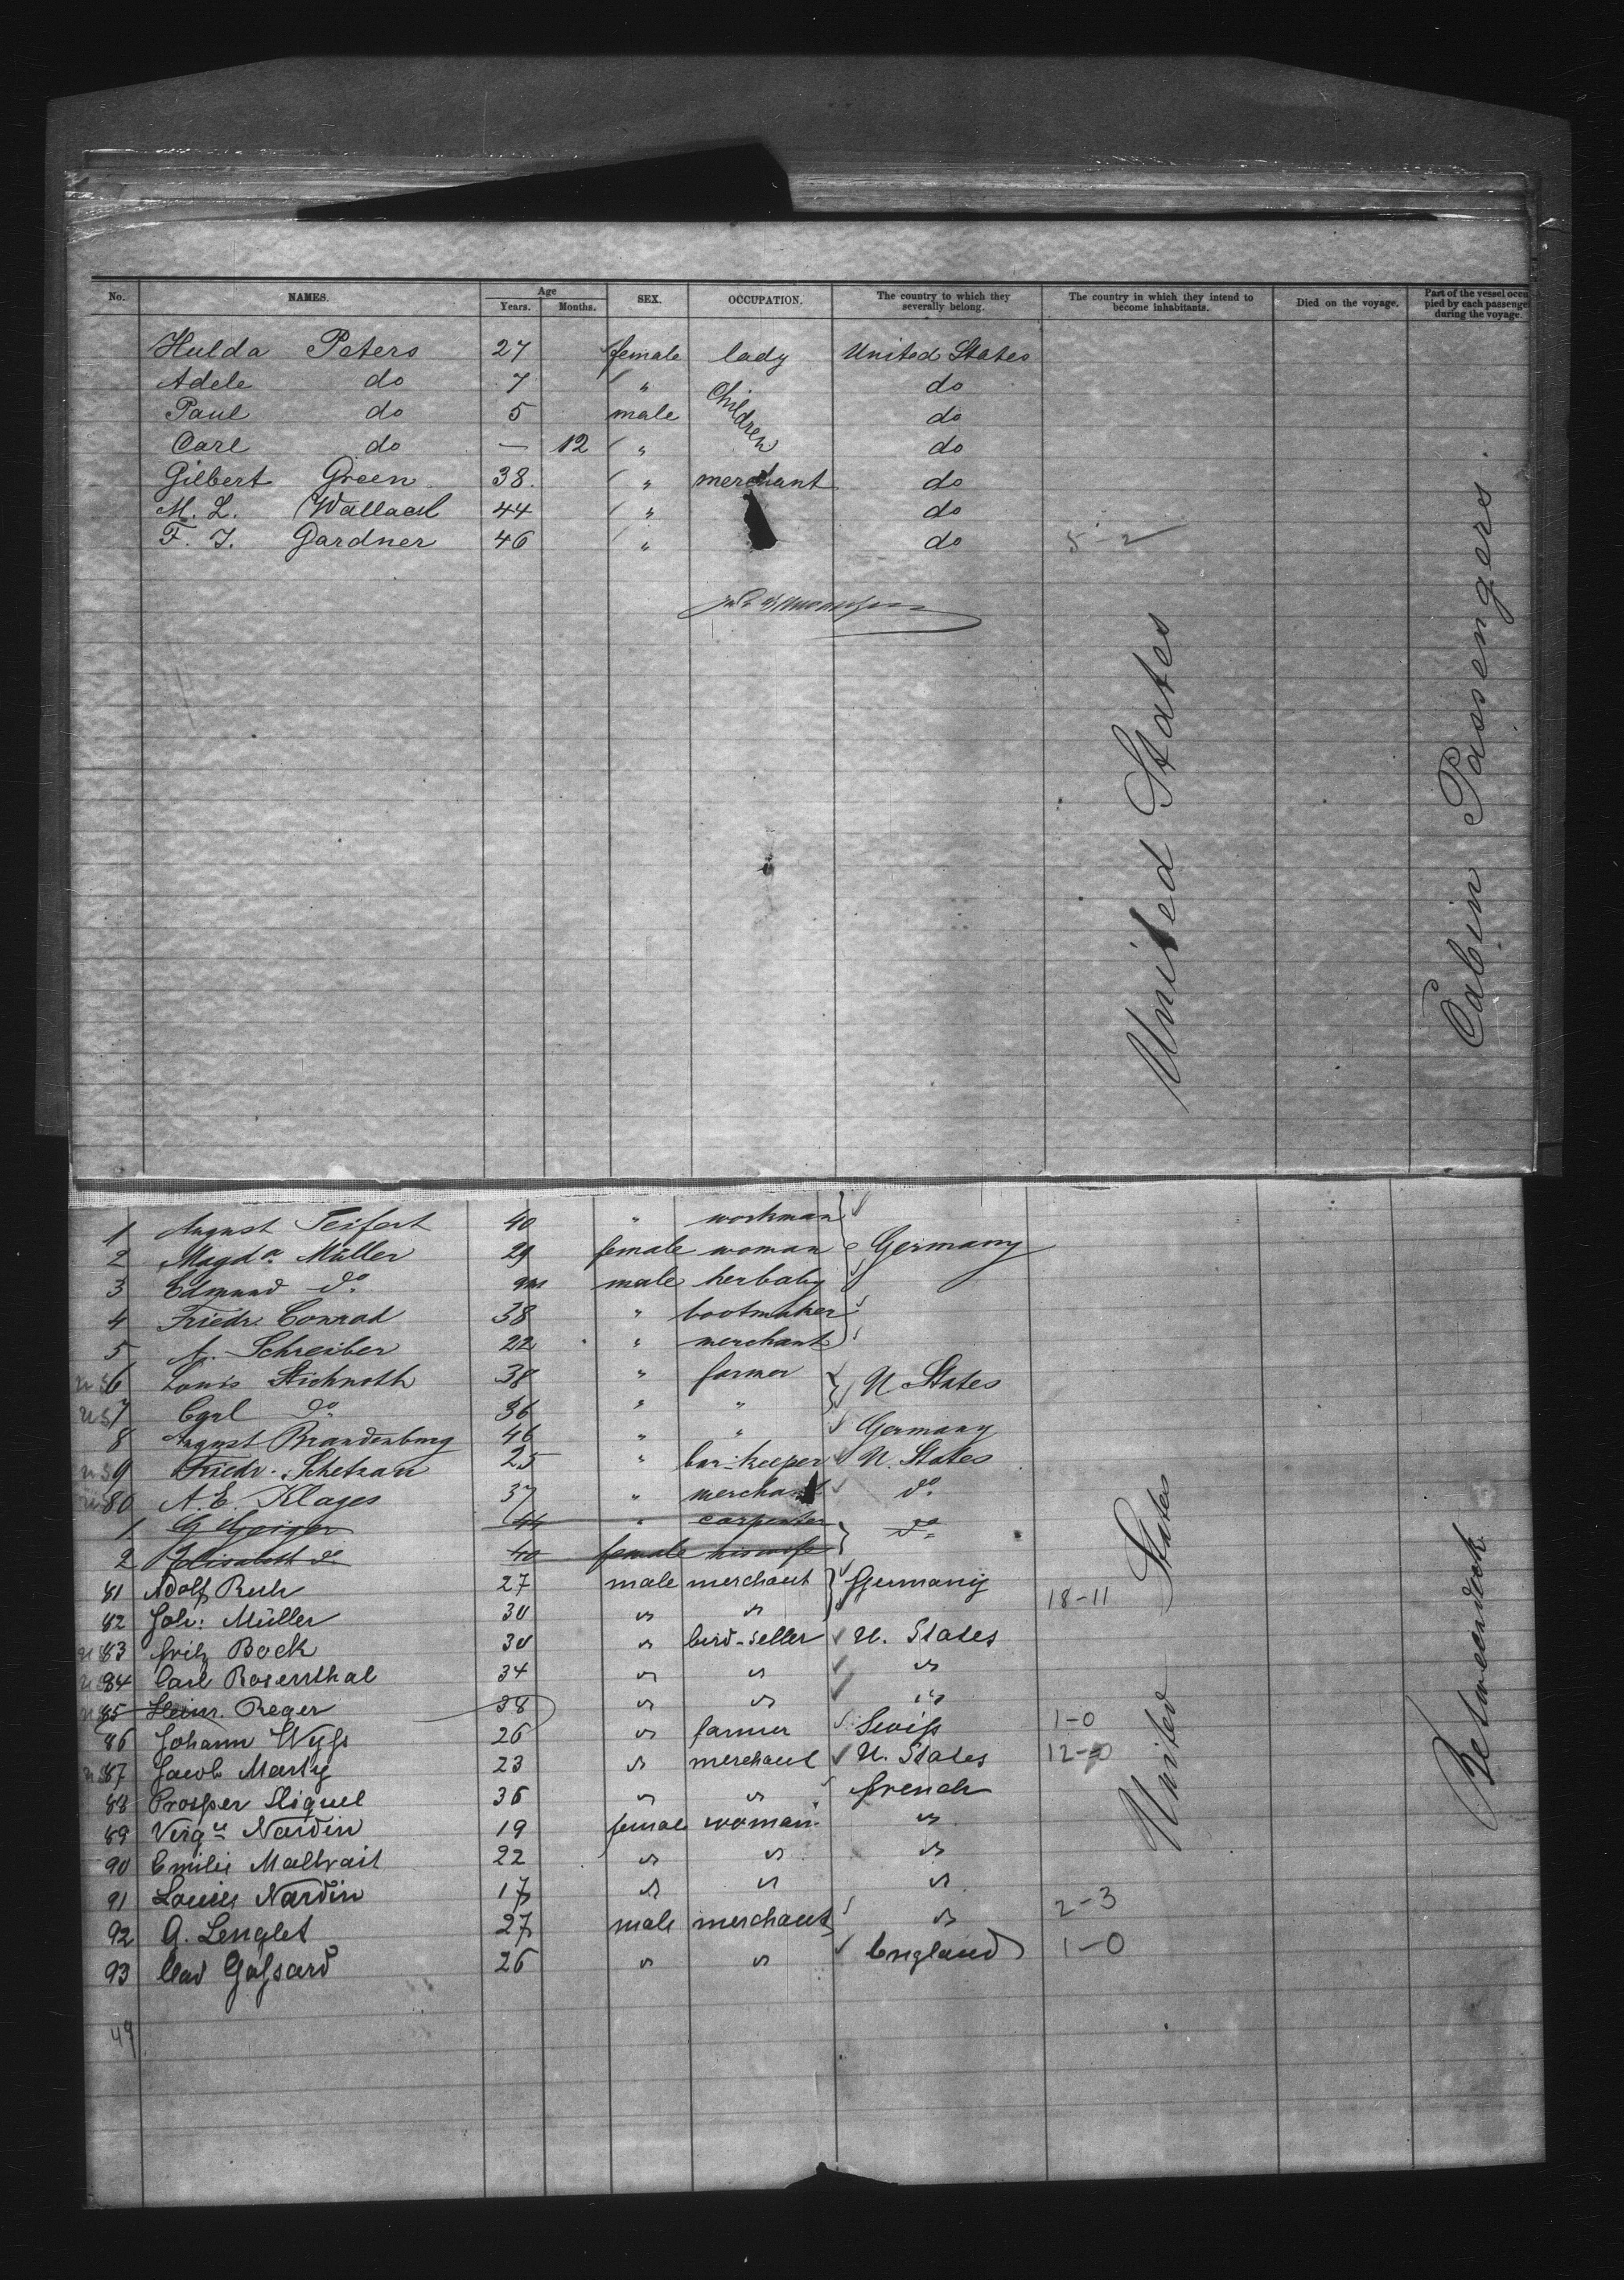 No. NAMES. Age Years. Months. SEX. OCCUPATION. The country to which they severally belong. The country in which they intend to become inhabitants. Died on the voyage. Part of the vessel occupied by each passenger during the voyage.
Hulda Peters 27 female lady United States
Adele do 7 " Children do
Paul do 5 male do
Carl do — 12 " do
Gilbert Green 38. " merchant do
M. L. Wallach 44 " do
F. J. Gardner 46 " do 5-2
United States
Cabin Passengers.
1 August Seifert 40 " workman
2 Magda. Müller 29 female woman Germany
3 Edmund do. 9m male her baby
4 Friedr. Conrad 38 " bootmaker
5 A. Schreiber 22 " merchant
us 6 Louis Stichnoth 38 " farmer U States
us 7 Carl do. 36 " "
8 August Brandenburg 46 " " Germany
us 9 Friedr. Schetzau 25 " bar-keeper U. States
us 80 A. E. Klages 37 " merchant do.
1 G Geiger 44 " carpenter do
2 Elisabeth do 40 female his wife
81 Adolf Ruh 27 male merchant Germany
82 Joh: Müller 30 " " 18-11
us 83 Fritz Bock 30 " bird-seller U. States
us 84 Carl Rosenthal 34 " " "
us 85 Heinr. Reger 38 " " "
86 Johann Wyss 26 " farmer Swiss 1-0
us 87 Jacob Marty 23 " merchant U. States 12-0
88 Prosper Sliquel 36 " " french
89 Virgie Nardin 19 female woman "
90 Emilie Maltrait 22 " " "
91 Louise Nardin 17 " " "
92 A. Lenglet 27 male merchant " 2-3
93 Gassard 26 " " England 1-0
49
United States
Betweendeck